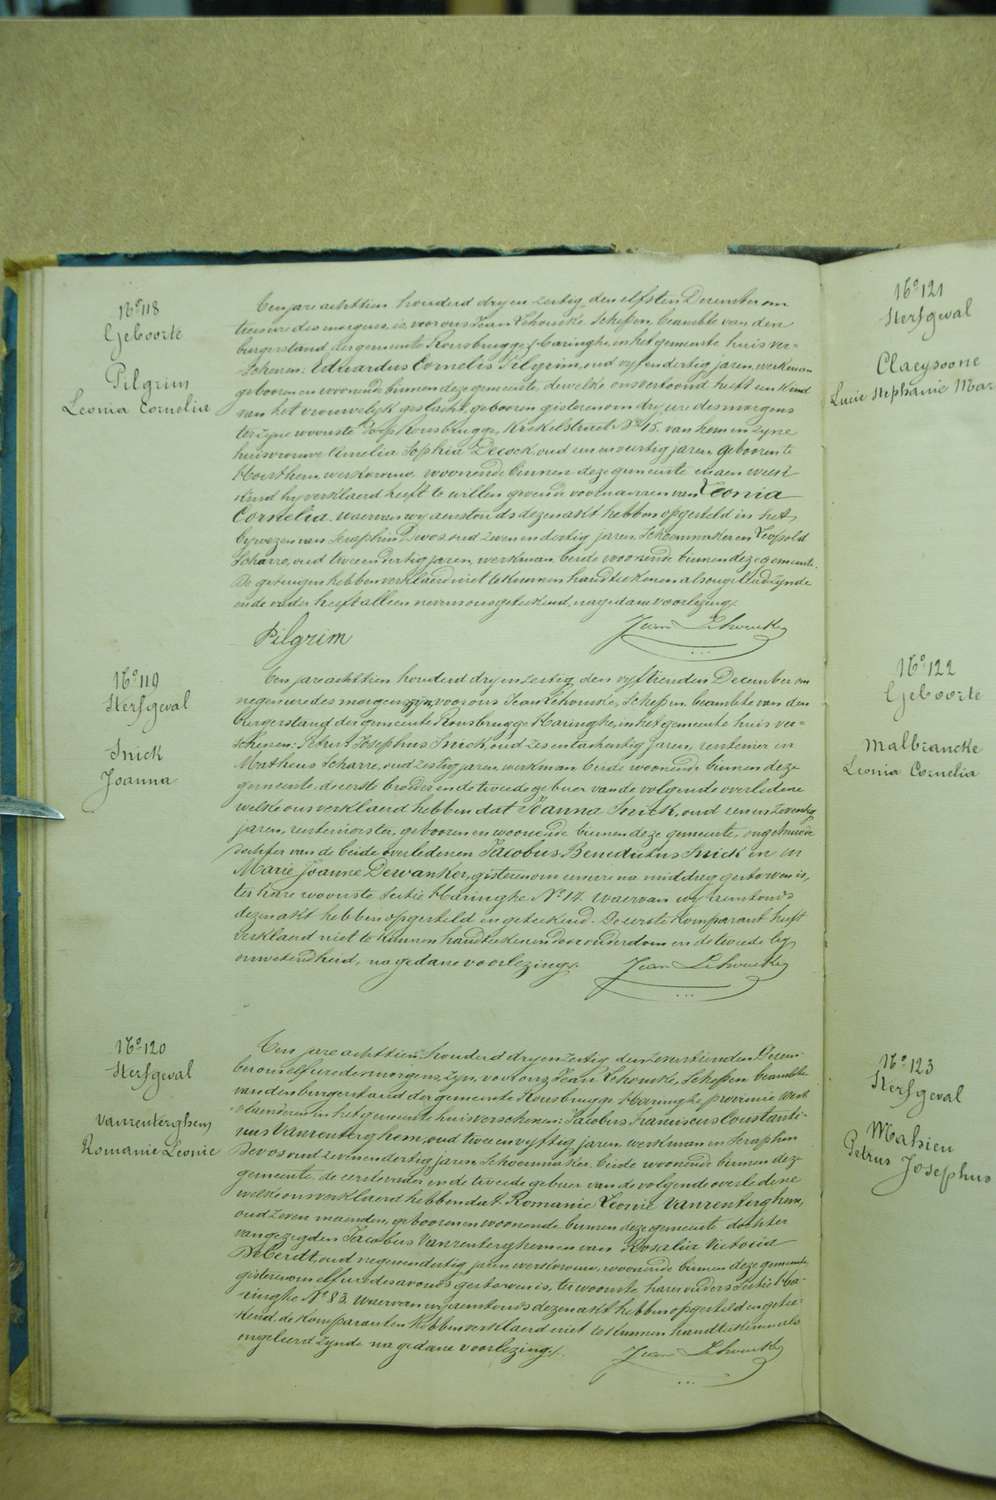 No 118
Geboorte
Pilgrim
Leonia Cornelia
Een jare achttien honderd dry en zestig, den elfsten December om
twee ure des morgens, is voor ons Jean Lehoucke, Schepen, beambte van den
burgerstand der gemeente Rousbrugge-Haringhe, in het gemeente huis ver-
schenen: Eduardus Cornelis Pilgrim, oud vyf en dertig jaren, werkman
geboren en woonende binnen deze gemeente, dewelke ons vertoond heeft een kind
van het vrouwelyk geslacht, geboren gisteren om dry ure des morgens
ter zyne woonste dorp Rousbrugge, Krekelstraet No 15, van hem en zyne
huisvrouwe Amelia Sophia Decock, oud een en veertig jaren, geboren te
werkvrouw, woonende binnen deze gemeente en aen welk
kind hy verklaerd heeft te willen geven de voornamen van Leonia
Cornelia. waervan wy aenstonds deze nakt hebben opgesteld in het
bywezen van Seraphin Devos, oud zeven en dertig jaren, Schoenmaker en Leopold
Scharre, oud twee en dertig jaren, werkman, beide woonende binnen deze gemeente.
De getuigen hebben verklaerd niet te kunnen handteekenen als ongeleerd zynde
en de vader heeft alleen nevens ons geteekend, na gedane voorlezing.
Pilgrim Jean Lehoucke
No 119
Sterfgeval
Snick
Joanna
Een jare achttien honderd dry en zestig, den vyftienden December om
negen ure des morgens zyn, voor ons Jean Lehoucke, Schepen, beambte van den
burgerstand der gemeente Rousbrugge-Haringhe, in het gemeente huis ver-
schenen: Petrus Josephus Snick, oud zes en tachentig jaren, rentenier en
Mattheus Scharre, oud zestig jaren, werkman, beide woonende binnen deze
gemeente, de eerste broeder en de tweede gebuer van de volgende overledene
welke ons verklaerd hebben dat Joanna Snick, oud een en zeventig
jaren, rentenierster, geboren en woonende binnen deze gemeente, ongehuwde
dochter van de beide overledenen Jacobus Benedictus Snick en
Marie Joanne Dewanker, gisteren om eene ure na middag gestorven is,
ter hare woonste sectie Haringhe No 14. waervan wy aenstonds
deze nakt hebben opgesteld en geteekend. De eerste Komparant heeft
verklaerd niet te kunnen handteekenen door ouderdom en de tweede by
onwetendheid, na gedane voorlezing. Jean Lehoucke
No 120
Sterfgeval
Vanrenterghem
Romanie Leonie
Een jare achttien honderd dry en zestig, den zeventienden Decem-
ber om elf ure des morgens, zyn, voor ons Jean Lehoucke, Schepen beambte
van den burgerstand der gemeente Rousbrugge-Haringhe provincie West
Vlaenderen in het gemeente huis verschenen: Jacobus Franciscus Constanti-
nus Vanrenterghem, oud twee en vyftig jaren, werkman en Seraphin
Devos oud zeven en dertig jaren, Schoenmaker, beide woonende binnen deze
gemeente, de eerste vader en de tweede gebuer van de volgende overledene
welke ons verklaerd hebben dat Romanie Leonie Vanrenterghem,
oud zeven maenden, geboren en woonende binnen deze gemeente dochter
van gezegden Jacobus Vanrenterghem en van Rosalia Victoria
Deberdt, oud negen en dertig jaren werkvrouw, woonende binnen deze gemeente,
gisteren om elf ure des avonds gestorven is, ter woonste harer ouders sectie Ha-
ringhe No 83. waervan wy aenstonds deze nakt hebben opgesteld en getee-
kend, de Komparanten hebben verklaerd niet te kunnen handteekenen als
ongeleerd zynde na gedane voorlezing. Jean Lehoucke
No 121
Sterfgeval
Claeysoone
Lucie Stephanie Mar
No 122
Geboorte
Malbrancke
Leonia Cornelia
No 123
Sterfgeval
Mahieu
Petrus Josephus